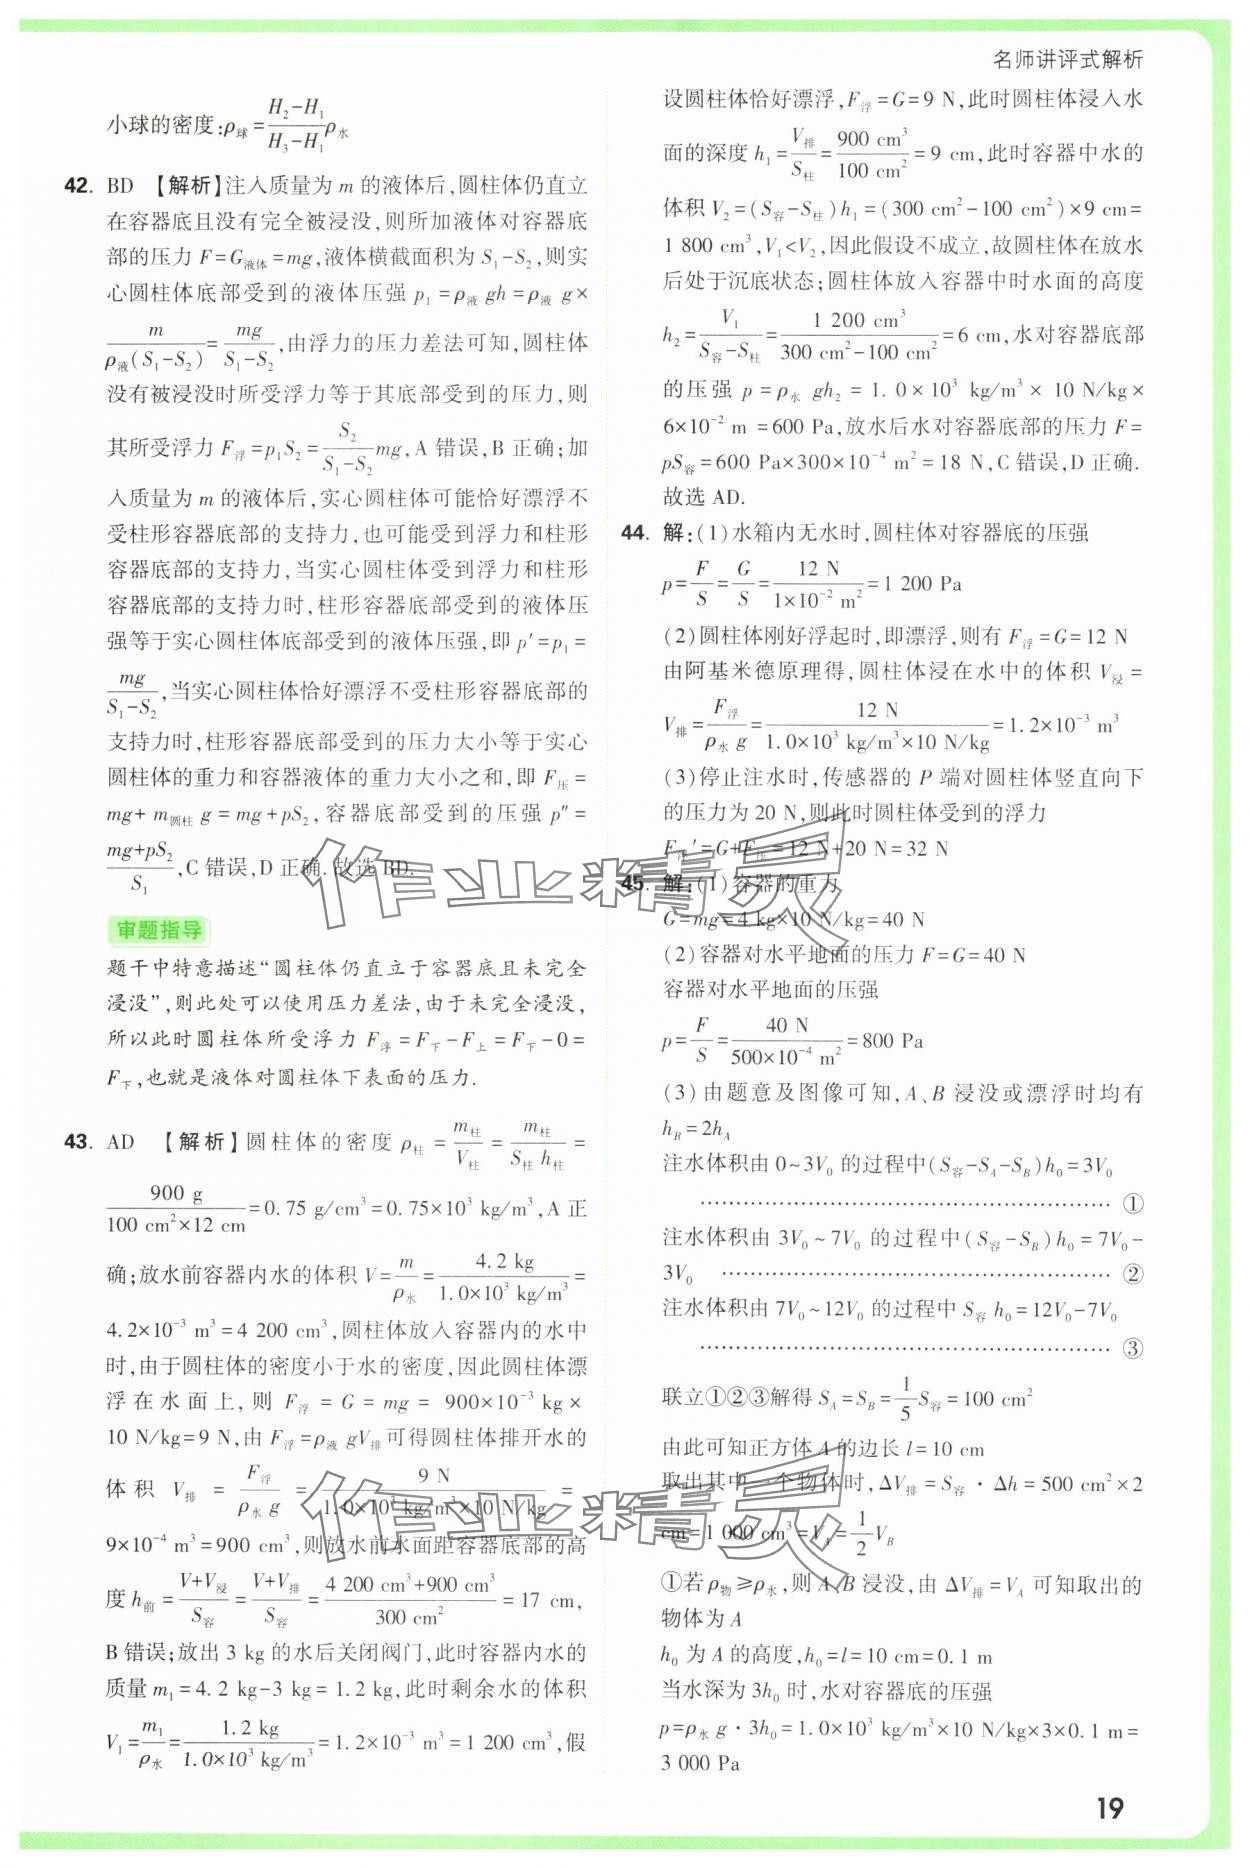 名师讲评式解析
小球的密度:ρ球=(H₂-H₁)/(H₃-H₁)ρ水
42. BD 【解析】注入质量为 m 的液体后,圆柱体仍直立
在容器底且没有完全被浸没,则所加液体对容器底
部的压力 F=G液体=mg,液体横截面积为 S₁-S₂,则实
心圆柱体底部受到的液体压强 p₁=ρ液 gh=ρ液 g×
m/(ρ液(S₁-S₂))=mg/(S₁-S₂),由浮力的压力差法可知,圆柱体
没有被浸没时所受浮力等于其底部受到的压力,则
其所受浮力 F浮=p₁S₂=S₂/(S₁-S₂)mg,A 错误,B 正确;加
入质量为 m 的液体后,实心圆柱体可能恰好漂浮不
受柱形容器底部的支持力,也可能受到浮力和柱形
容器底部的支持力,当实心圆柱体受到浮力和柱形
容器底部的支持力时,柱形容器底部受到的液体压
强等于实心圆柱体底部受到的液体压强,即 p′=p₁=
mg/(S₁-S₂),当实心圆柱体恰好漂浮不受柱形容器底部的
支持力时,柱形容器底部受到的压力大小等于实心
圆柱体的重力和容器液体的重力大小之和,即 F压=
mg+m圆柱 g=mg+pS₂,容器底部受到的压强 p″=
(mg+pS₂)/S₁,C 错误,D 正确.故选 BD.
审题指导
题干中特意描述“圆柱体仍直立于容器底且未完全
浸没”,则此处可以使用压力差法,由于未完全浸没,
所以此时圆柱体所受浮力 F浮=F下-F上=F下-0=
F下,也就是液体对圆柱体下表面的压力.
43. AD 【解析】圆柱体的密度 ρ柱=m柱/V柱=m柱/(S柱 h柱)=
900 g/(100 cm²×12 cm)=0.75 g/cm³=0.75×10³ kg/m³,A 正
确;放水前容器内水的体积 V=m/ρ水=4.2 kg/(1.0×10³ kg/m³)=
4.2×10⁻³ m³=4 200 cm³,圆柱体放入容器内的水中
时,由于圆柱体的密度小于水的密度,因此圆柱体漂
浮在水面上,则 F浮=G=mg=900×10⁻³ kg×
10 N/kg=9 N,由 F浮=ρ液 gV排可得圆柱体排开水的
体积 V排=F浮/(ρ水 g)=9 N/(1.0×10³ kg/m³×10 N/kg)=
9×10⁻⁴ m³=900 cm³,则放水前水面距容器底部的高
度 h前=(V+V浸)/S容=(V+V排)/S容=(4 200 cm³+900 cm³)/(300 cm²)=17 cm,
B 错误;放出 3 kg 的水后关闭阀门,此时容器内水的
质量 m₁=4.2 kg-3 kg=1.2 kg,此时剩余水的体积
V₁=m₁/ρ水=1.2 kg/(1.0×10³ kg/m³)=1.2×10⁻³ m³=1 200 cm³,假
设圆柱体恰好漂浮,F浮=G=9 N,此时圆柱体浸入水
面的深度 h₁=V排/S柱=900 cm³/100 cm²=9 cm,此时容器中水的
体积 V₂=(S容-S柱)h₁=(300 cm²-100 cm²)×9 cm=
1 800 cm³,V₁<V₂,因此假设不成立,故圆柱体在放水
后处于沉底状态;圆柱体放入容器中时水面的高度
h₂=V₁/(S容-S柱)=1 200 cm³/(300 cm²-100 cm²)=6 cm,水对容器底部
的压强 p=ρ水 gh₂=1.0×10³ kg/m³×10 N/kg×
6×10⁻² m=600 Pa,放水后水对容器底部的压力 F=
pS容=600 Pa×300×10⁻⁴ m²=18 N,C 错误,D 正确.
故选 AD.
44. 解:(1)水箱内无水时,圆柱体对容器底的压强
p=F/S=G/S=12 N/(1×10⁻² m²)=1 200 Pa
(2)圆柱体刚好浮起时,即漂浮,则有 F浮=G=12 N
由阿基米德原理得,圆柱体浸在水中的体积 V浸=
V排=F浮/(ρ水 g)=12 N/(1.0×10³ kg/m³×10 N/kg)=1.2×10⁻³ m³
(3)停止注水时,传感器的 P 端对圆柱体竖直向下
的压力为 20 N,则此时圆柱体受到的浮力
F浮′=G+F压=12 N+20 N=32 N
45. 解:(1)容器的重力
G=mg=4 kg×10 N/kg=40 N
(2)容器对水平地面的压力 F=G=40 N
容器对水平地面的压强
p=F/S=40 N/(500×10⁻⁴ m²)=800 Pa
(3)由题意及图像可知,A、B 浸没或漂浮时均有
h_B=2h_A
注水体积由 0~3V₀ 的过程中(S容-S_A-S_B)h₀=3V₀
…………………………………………………… ①
注水体积由 3V₀~7V₀ 的过程中(S容-S_B)h₀=7V₀-
3V₀ ………………………………………………… ②
注水体积由 7V₀~12V₀ 的过程中 S容 h₀=12V₀-7V₀
…………………………………………………… ③
联立①②③解得 S_A=S_B=1/5 S容=100 cm²
由此可知正方体 A 的边长 l=10 cm
取出其中一个物体时,ΔV排=S容·Δh=500 cm²×2
cm=1 000 cm³=V_A=1/2 V_B
①若 ρ物≥ρ水,则 A、B 浸没,由 ΔV排=V_A 可知取出的
物体为 A
h₀ 为 A 的高度,h₀=l=10 cm=0.1 m
当水深为 3h₀ 时,水对容器底的压强
p=ρ水 g·3h₀=1.0×10³ kg/m³×10 N/kg×3×0.1 m=
3 000 Pa
19
作业精灵
作业精灵